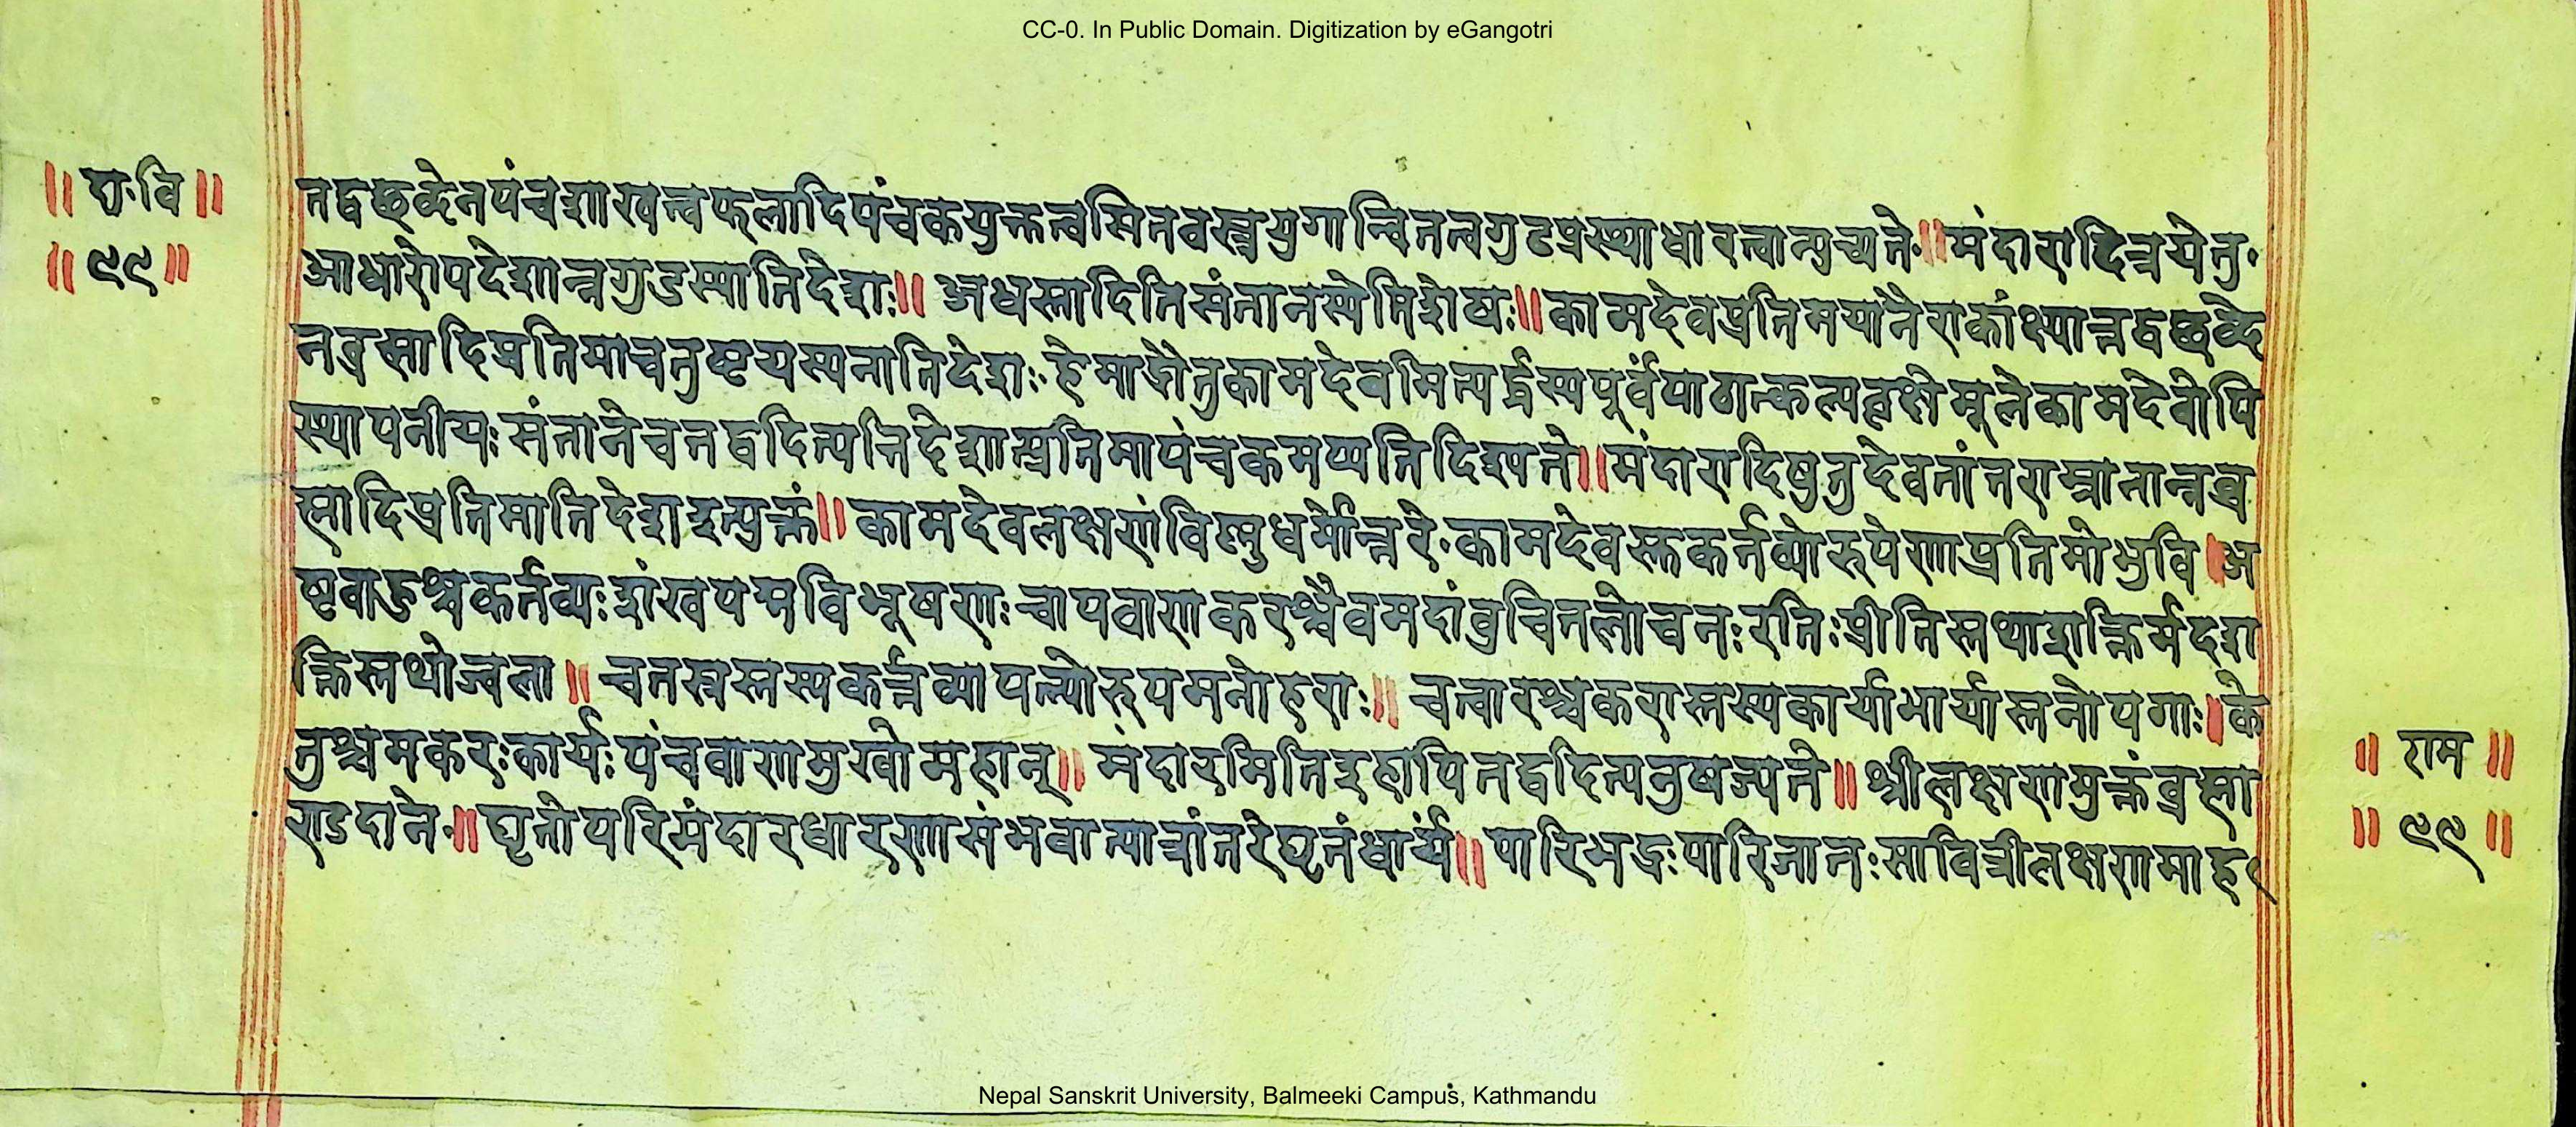 CC-0. In Public Domain. Digitization by eGangotri
॥ दा॰वि ॥
॥ ९९ ॥
तद्वच्छब्देनपंचशाखत्वफलादिपंचकयुक्तत्वसितवस्त्रयुगान्वितत्वगुडप्रस्थाधारत्वान्युच्यते॰॥मंदारादित्रयेतु॰
आधारोपदेशान्नगुडस्यातिदेशः॥ अधस्तादितिसंतानस्येतिशेषः॥कामदेवप्रतिमयानैराकांक्ष्यान्नतद्वच्छब्दे
नब्रह्मादिप्रतिमाचतुष्टयस्यनातिदेशः॰हेमाद्रौतुकामदेवमित्यर्द्धस्यपूर्वंपाठात्कल्पवृक्षेमूलेकामदेवोपि
स्थापनीयः संतानेचतद्वदित्यतिदेशात्प्रतिमापंचकमप्यतिदिश्यते॥मंदारादिषुतुदेवतांतराम्नानान्नब्र
ह्मादिप्रतिमातिदेशइत्युक्तं॥ कामदेवलक्षणंविष्णुधर्मोत्तरे॰कामदेवस्तुकर्त्तव्योरूपेणाप्रतिमोभुवि।अ
ष्टबाहुश्चकर्त्तव्यःशंखपद्मविभूषणः चापबाणकरश्चैवमदांबुचितलोचनःरतिःप्रीतिस्तथाशक्तिर्मदश
क्तिस्तथोज्वला॥ चतस्रस्तस्यकर्त्तव्यापत्न्योरूपमनोहराः॥ चत्वारश्चकरास्तस्यकार्याभार्यास्तनोपगाः।के
तुश्चमकरःकार्यःपंचबाणमुखोमहान्॥ मंदारमितिइहापितद्वदित्यनुषज्यते॥ श्रीलक्षणमुक्तंब्रह्मा
ण्डदाने॰॥ घृतोपरिमंदारधारणासंभवात्पात्रांतरेघृतंधार्यं॥ पारिभद्रःपारिजातःसावित्रीलक्षणमाह
॥ राम ॥
॥ ९९ ॥
Nepal Sanskrit University, Balmeeki Campus, Kathmandu